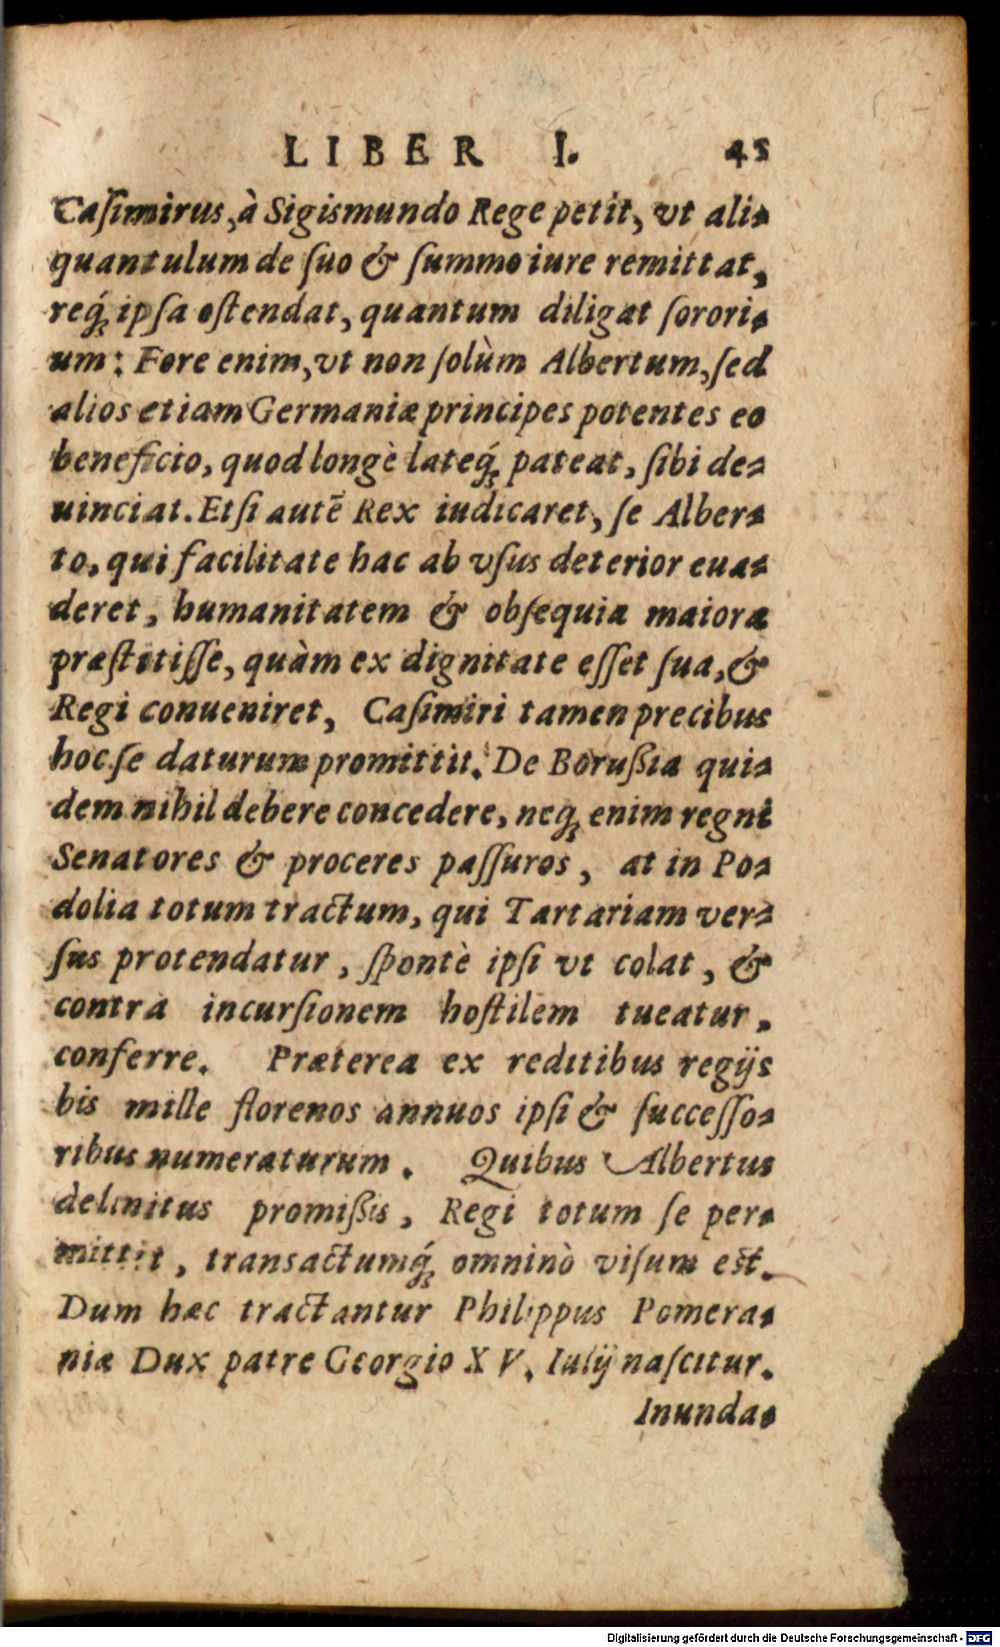 LIBER I. 45
Caſimirus, à Sigismundo Rege petit, vt ali-
quantulum de ſuo & ſummo iure remittat,
req́ꝫ ipſa oſtendat, quantum diligat ſorori-
um: Fore enim, vt non ſolùm Albertum, ſed
alios etiam Germaniæ principes potentes eo
beneficio, quod longè lateq́ꝫ pateat, ſibi de-
uinciat. Etſi autē Rex iudicaret, ſe Alber-
to, qui facilitate hac ab vſus deterior eua-
deret, humanitatem & obſequia maiora
præſtitiſſe, quàm ex dignitate eſſet ſua, &
Regi conueniret, Caſimiri tamen precibus
hoc ſe daturum promittit. De Borußia qui-
dem nihil debere concedere, neqꝫ enim regni
Senatores & proceres paſſuros, at in Po-
dolia totum tractum, qui Tartariam ver-
ſus protendatur, ſpontè ipſi vt colat, &
contra incurſionem hoſtilem tueatur,
conferre. Præterea ex reditibus regijs
bis mille florenos annuos ipſi & ſucceſſo-
ribus numeraturum. Quibus Albertus
delinitus promißis, Regi totum ſe per-
mittit, transactumq́ꝫ omninò viſum est.
Dum hæc tractantur Philippus Pomera-
niæ Dux patre Georgio XV. Iulij naſcitur.
Inunda-
Digitalisierung gefördert durch die Deutsche Forschungsgemeinschaft - DFG